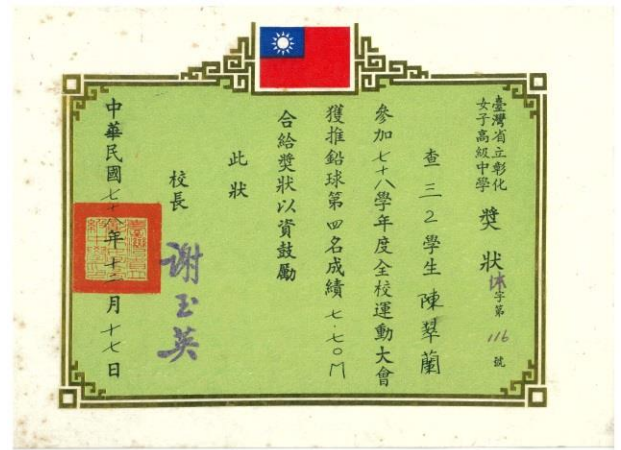 臺灣省立彰化
女子高級中學
獎狀
体字第116號
查三2學生陳翠蘭
參加七十八學年度全校運動大會
獲推鉛球第四名成績七.七○M
合給獎狀以資鼓勵
此狀
校長 謝玉英
中華民國七十八年十二月十七日